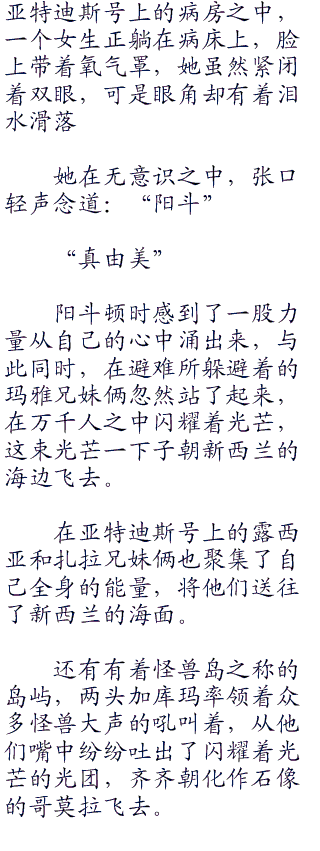 亚特迪斯号上的病房之中，
一个女生正躺在病床上，脸
上带着氧气罩，她虽然紧闭
着双眼，可是眼角却有着泪
水滑落
她在无意识之中，张口
轻声念道：“阳斗”
“真由美”
阳斗顿时感到了一股力
量从自己的心中涌出来，与
此同时，在避难所躲避着的
玛雅兄妹俩忽然站了起来，
在万千人之中闪耀着光芒，
这束光芒一下子朝新西兰的
海边飞去。
在亚特迪斯号上的露西
亚和扎拉兄妹俩也聚集了自
己全身的能量，将他们送往
了新西兰的海面。
还有有着怪兽岛之称的
岛屿，两头加库玛率领着众
多怪兽大声的吼叫着，从他
们嘴中纷纷吐出了闪耀着光
芒的光团，齐齐朝化作石像
的哥莫拉飞去。